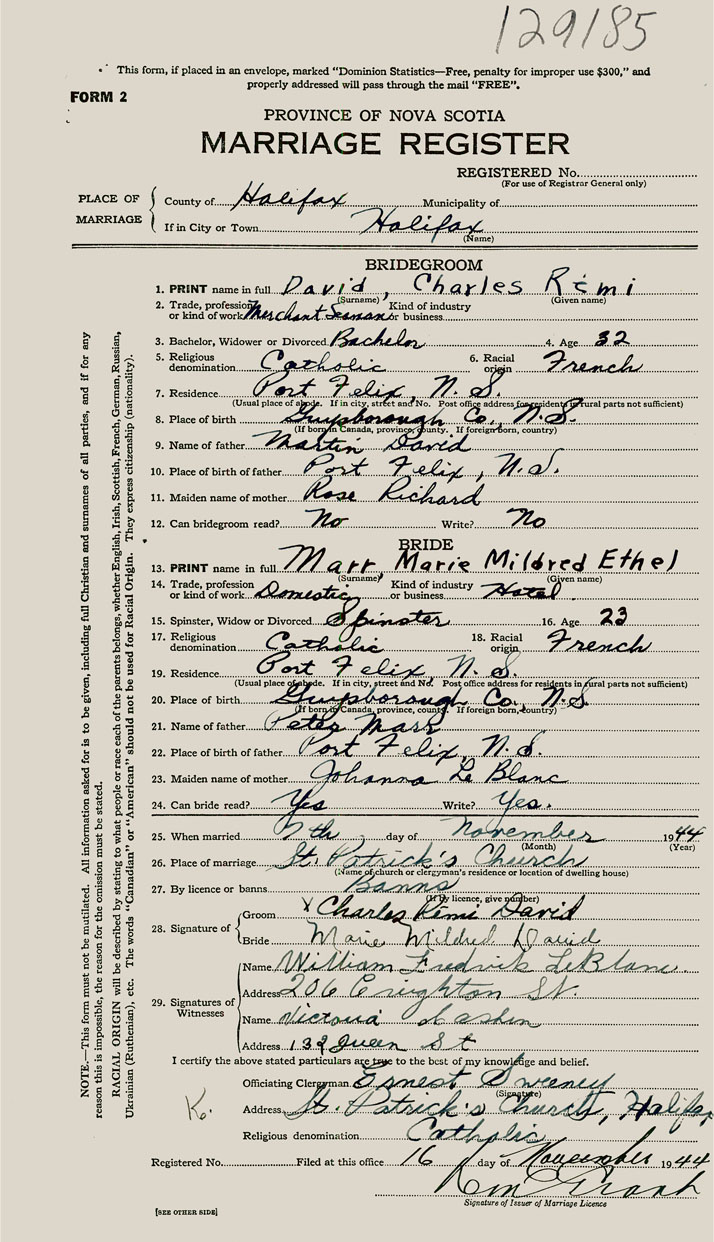 129185
This form, if placed in an envelope, marked "Dominion Statistics—Free, penalty for improper use $300," and
properly addressed will pass through the mail "FREE".
FORM 2
PROVINCE OF NOVA SCOTIA
MARRIAGE REGISTER
REGISTERED No.
(For use of Registrar General only)
PLACE OF MARRIAGE
County of Halifax Municipality of
If in City or Town Halifax
(Name)
BRIDEGROOM
1. PRINT name in full David, Charles Rémi
(Surname) (Given name)
2. Trade, profession or kind of work Merchant Seaman Kind of industry or business
3. Bachelor, Widower or Divorced Bachelor 4. Age 32
5. Religious denomination Catholic 6. Racial origin French
7. Residence Port Felix, N. S.
(Usual place of abode. If in city, street and No. Post office address for residents in rural parts not sufficient)
8. Place of birth Guysborough Co., N.S.
(If born in Canada, province, county. If foreign born, country)
9. Name of father Martin David
10. Place of birth of father Port Felix, N.S.
11. Maiden name of mother Rose Richard
12. Can bridegroom read? No Write? No
BRIDE
13. PRINT name in full Marr Marie Mildred Ethel
(Surname) (Given name)
14. Trade, profession or kind of work Domestic Kind of industry or business Hotel
15. Spinster, Widow or Divorced Spinster 16. Age 23
17. Religious denomination Catholic 18. Racial origin French
19. Residence Port Felix, N. S.
(Usual place of abode. If in city, street and No. Post office address for residents in rural parts not sufficient)
20. Place of birth Guysborough Co., N.S.
(If born in Canada, province, county. If foreign born, country)
21. Name of father Peter Marr
22. Place of birth of father Port Felix, N.S.
23. Maiden name of mother Johanna Le Blanc
24. Can bride read? Yes Write? Yes.
25. When married 7th day of November 1944
(Month) (Year)
26. Place of marriage St. Patrick's Church
(Name of church or clergyman's residence or location of dwelling house)
27. By licence or banns Banns
(If by licence, give number)
28. Signature of
Groom X Charles Rémi David
Bride Marie Mildred David
29. Signatures of Witnesses
Name William Fredrick LeBlanc
Address 206 Creighton St.
Name Victoria
Address 132 Queen St
I certify the above stated particulars are true to the best of my knowledge and belief.
Officiating Clergyman Ernest Sweeney
(Signature)
K.
Address St. Patrick's Church, Halifax
Religious denomination Catholic
Registered No. Filed at this office 16 day of November 1944
Signature of Issuer of Marriage Licence
[SEE OTHER SIDE]
NOTE.—This form must not be mutilated. All information asked for is to be given, including full Christian and surnames of all parties, and if for any
reason this is impossible, the reason for the omission must be stated.
RACIAL ORIGIN will be described by stating to what people or race each of the parents belongs, whether English, Irish, Scottish, French, German, Russian,
Ukrainian (Ruthenian), etc. The words "Canadian" or "American" should not be used for Racial Origin. They express citizenship (nationality).